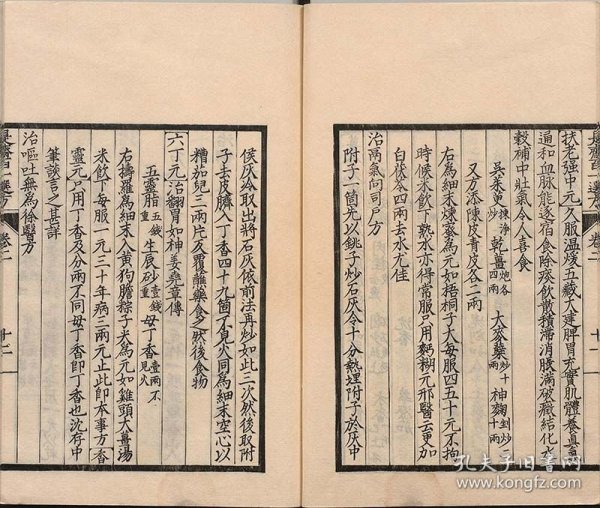 扶老强中元久服温煖五藏大建脾胃充實肌體養真氣
通和血脉能逐宿食除痰飲散積滯消脹滿破癥結化水
穀補中壯氣令人喜食
吳茱萸揀淨炒 乾薑炮各四兩 大麥蘖炒十兩 神麴剉炒十兩
又方添陳皮青皮各二兩
右為細末煉蜜為元如梧桐子大每服四五十元不拘
時候米飲下熟水亦得常服只用麪糊元邢醫云更加
白茯苓四兩去水尤佳
治鬲氣向司户方
附子一箇先以銚子炒石灰令十分熱埋附子於灰中
十一
是齋百一選方 卷二 十二
候灰冷取出將石灰依前法再炒如此三次然後取附
子去皮臍入丁香四十九箇不見火同為細末空心以
糟茄兒三兩片反覆蘸藥食之狀後食物
六丁元治翻胃如神姜堯章傳
五靈脂五錢重 生辰砂壹錢重 母丁香壹兩不見火
右擣羅為細末入黃狗膽糉子米為元如雞頭大薑湯
米飲下每服一元三十年病三兩元止此即本事方香
靈元只用丁香及分兩不同母丁香即丁香也沈存中
筆談言之甚詳
治嘔吐無為徐醫方
孔夫子旧书网
www.kongfz.com